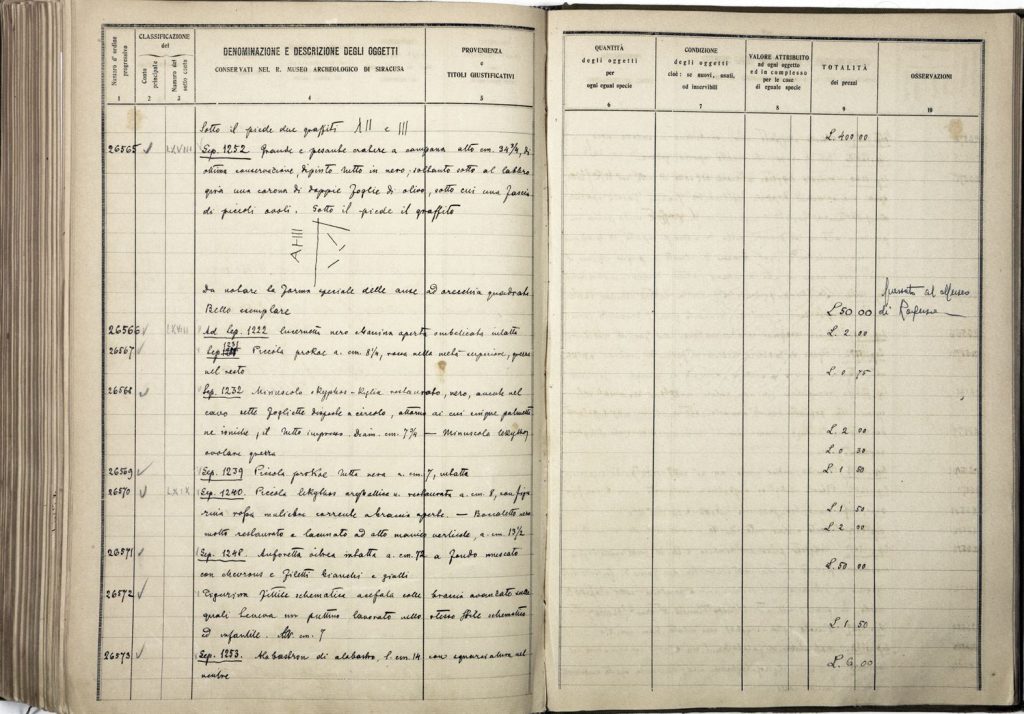 Numero d'ordine progressivo
CLASSIFICAZIONE del
Conto principale
Numero del sotto conto
DENOMINAZIONE E DESCRIZIONE DEGLI OGGETTI
CONSERVATI NEL R. MUSEO ARCHEOLOGICO DI SIRACUSA
PROVENIENZA
e
TITOLI GIUSTIFICATIVI
1 2 3 4 5
Sotto il piede due graffiti ΛII e III
26565 LXVIII Sep. 1252 Grande e pesante cratere a campana alto cm. 34 3/4, di
ottima conservazione, dipinto tutto in nero; soltanto sotto al labbro
gira una corona di doppie foglie di olivo, sotto cui una fascia
di piccoli ovoli. Sotto il piede il graffito
Da notare la forma speciale delle anse ad orecchia quadrata
Bello esemplare
26566 LXVIII Ad Sep. 1222 lucernetta nero aperta ombelicata intatta
26567 Piccola a. cm. 8 1/4, rossa nella metà superiore,
nel resto
26568 Sep. 1232 Minuscolo skyphos-kylix restaurato, nero, avente nel
cavo sette fogliette disposte a circolo, attorno ai cui cinque palmet
ne ioniche, il tutto impresso. diam. cm. 7 3/4 — Minuscola lekythos
ovolare grezza
26569 Sep. 1239 Piccola tutta nera a. cm. 7, intatta
26570 LXIX Sep. 1240. Piccola lekythos restaurata a. cm. 8, con figu
rina rossa muliebre corrente a braccia aperte. — Boccaletto nero
molto restaurato e lacunato ad alto manico verticale, a. cm. 13 1/2
26571 Sep. 1248. Anforetta intatta a. cm. 12 a fondo
con chevrons e filetti bianchi e gialli
26572 Figurina fittile schematica acefala colle braccia avanzate sulle
quali un puttino lavorato nello stesso stile schematico
ed infantile. Alt. cm. 7
26573 Sep. 1253. Alabastron di alabastro, l. cm. 14 con squarciatura nel
ventre
QUANTITÀ
degli oggetti
per
ogni egual specie
CONDIZIONE
degli oggetti
cioè: se nuovi, usati,
od inservibili
VALORE ATTRIBUITO
ad ogni oggetto
ed in complesso
per le cose
di eguale specie
TOTALITÀ
dei prezzi
OSSERVAZIONI
6 7 8 9 10
L. 400 00
L. 50 00
Passato al Museo
di Ragusa
L. 2 00
L. 0 75
L. 2 00
L. 0 30
L. 1 50
L. 1 50
L. 2 00
L. 50 00
L. 1 50
L. 6 00